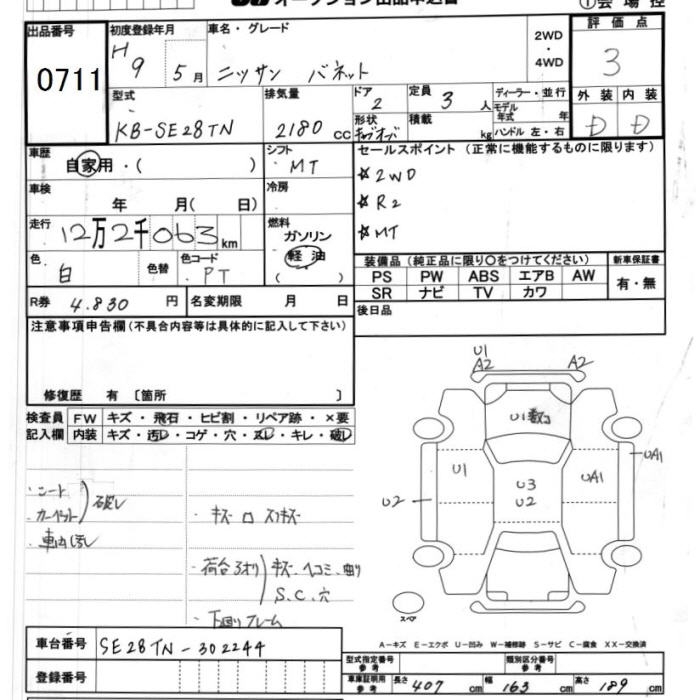 オークション出品申込書
①会場控
出品番号 初度登録年月 車名・グレード 2WD・4WD 評価点
0711 H9 5月 ニッサン バネット 3
型式 排気量 ドア 定員 ディーラー・並行 外装 内装
KB-SE28TN 2180cc 2 3人 モデル年式 年 D D
形状 積載 kg ハンドル 左・右
車歴 シフト セールスポイント (正常に機能するものに限ります)
自家用・( ) MT ☆2WD
車検 冷房 ☆R2
年 月( 日) ☆MT
走行 燃料
12万2千063km ガソリン
軽油
( )
色 色替 色コード 装備品 (純正品に限り○をつけてください) 新車保証書
白 PT PS PW ABS エアB AW 有・無
SR ナビ TV カワ
R券 4.830円 名変期限 月 日 後日品
注意事項申告欄(不具合内容等は具体的に記入して下さい)
修復歴 有 〔箇所 〕
検査員 FW キズ・飛石・ヒビ割・リペア跡・×要
記入欄 内装 キズ・汚レ・コゲ・穴・スレ・キレ・破レ
・シート
・カーペット 破レ
・キズ ロ
・荷台3オリ キズ、ヘコミ、曲り
S.C.穴
・下廻りフレーム
U1
A2 A2
U1数コ
U1 U3 UA1 UA1
U2 U2
スペア
A-キズ E-エクボ U-凹み W-補修跡 S-サビ C-腐食 XX-交換済
車台番号 SE28TN-302244
登録番号
型式指定番号 参考 類別区分番号 参考
車庫証明用 参考 長さ 407cm 幅 163cm 高さ 189cm